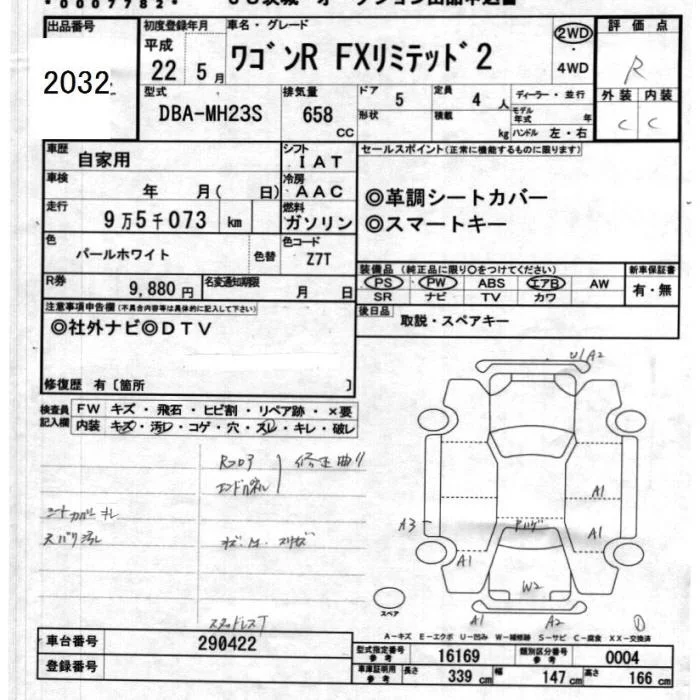 *0007782*
出品番号 初度登録年月 車名・グレード 評価点
2032 平成 22 5月 ワゴンR FXリミテッド2 2WD・4WD R
型式 排気量 ドア 定員 ディーラー・並行 外装 内装
DBA-MH23S 658 CC 5 4人 C C
形状 積載 kg モデル年式 年 ハンドル 左・右
車歴 シフト セールスポイント(正常に機能するものに限ります)
自家用 IAT
車検 年 月( 日) 冷房 AAC ◎革調シートカバー
走行 9万5千073 km 燃料 ガソリン ◎スマートキー
色 パールホワイト 色替 色コード Z7T
装備品(純正品に限り○をつけてください) 新車保証書
PS PW ABS エアB AW 有・無
SR ナビ TV カワ
R券 9,880円 名変通知期限 月 日
後日品 取説・スペアキー
注意事項申告欄(不具合内容等は具体的に記入して下さい)
◎社外ナビ◎DTV
修復歴 有〔箇所 〕
検査員記入欄 FW キズ・飛石・ヒビ割・リペア跡・×要
内装 キズ・汚レ・コゲ・穴・スレ・キレ・破レ
U1A2
Rフロア
エンドパネル 修正曲り
シートカバーキレ
A1
A3
A1
A1
W2
スペア
スタッドレスT
A1 A2
A-キズ E-エクボ U-凹み W-補修跡 S-サビ C-腐食 XX-交換済
車台番号 290422 型式指定番号 参考 16169 類別区分番号 参考 0004
登録番号 車庫証明用 参考 長さ 339cm 幅 147cm 高さ 166cm